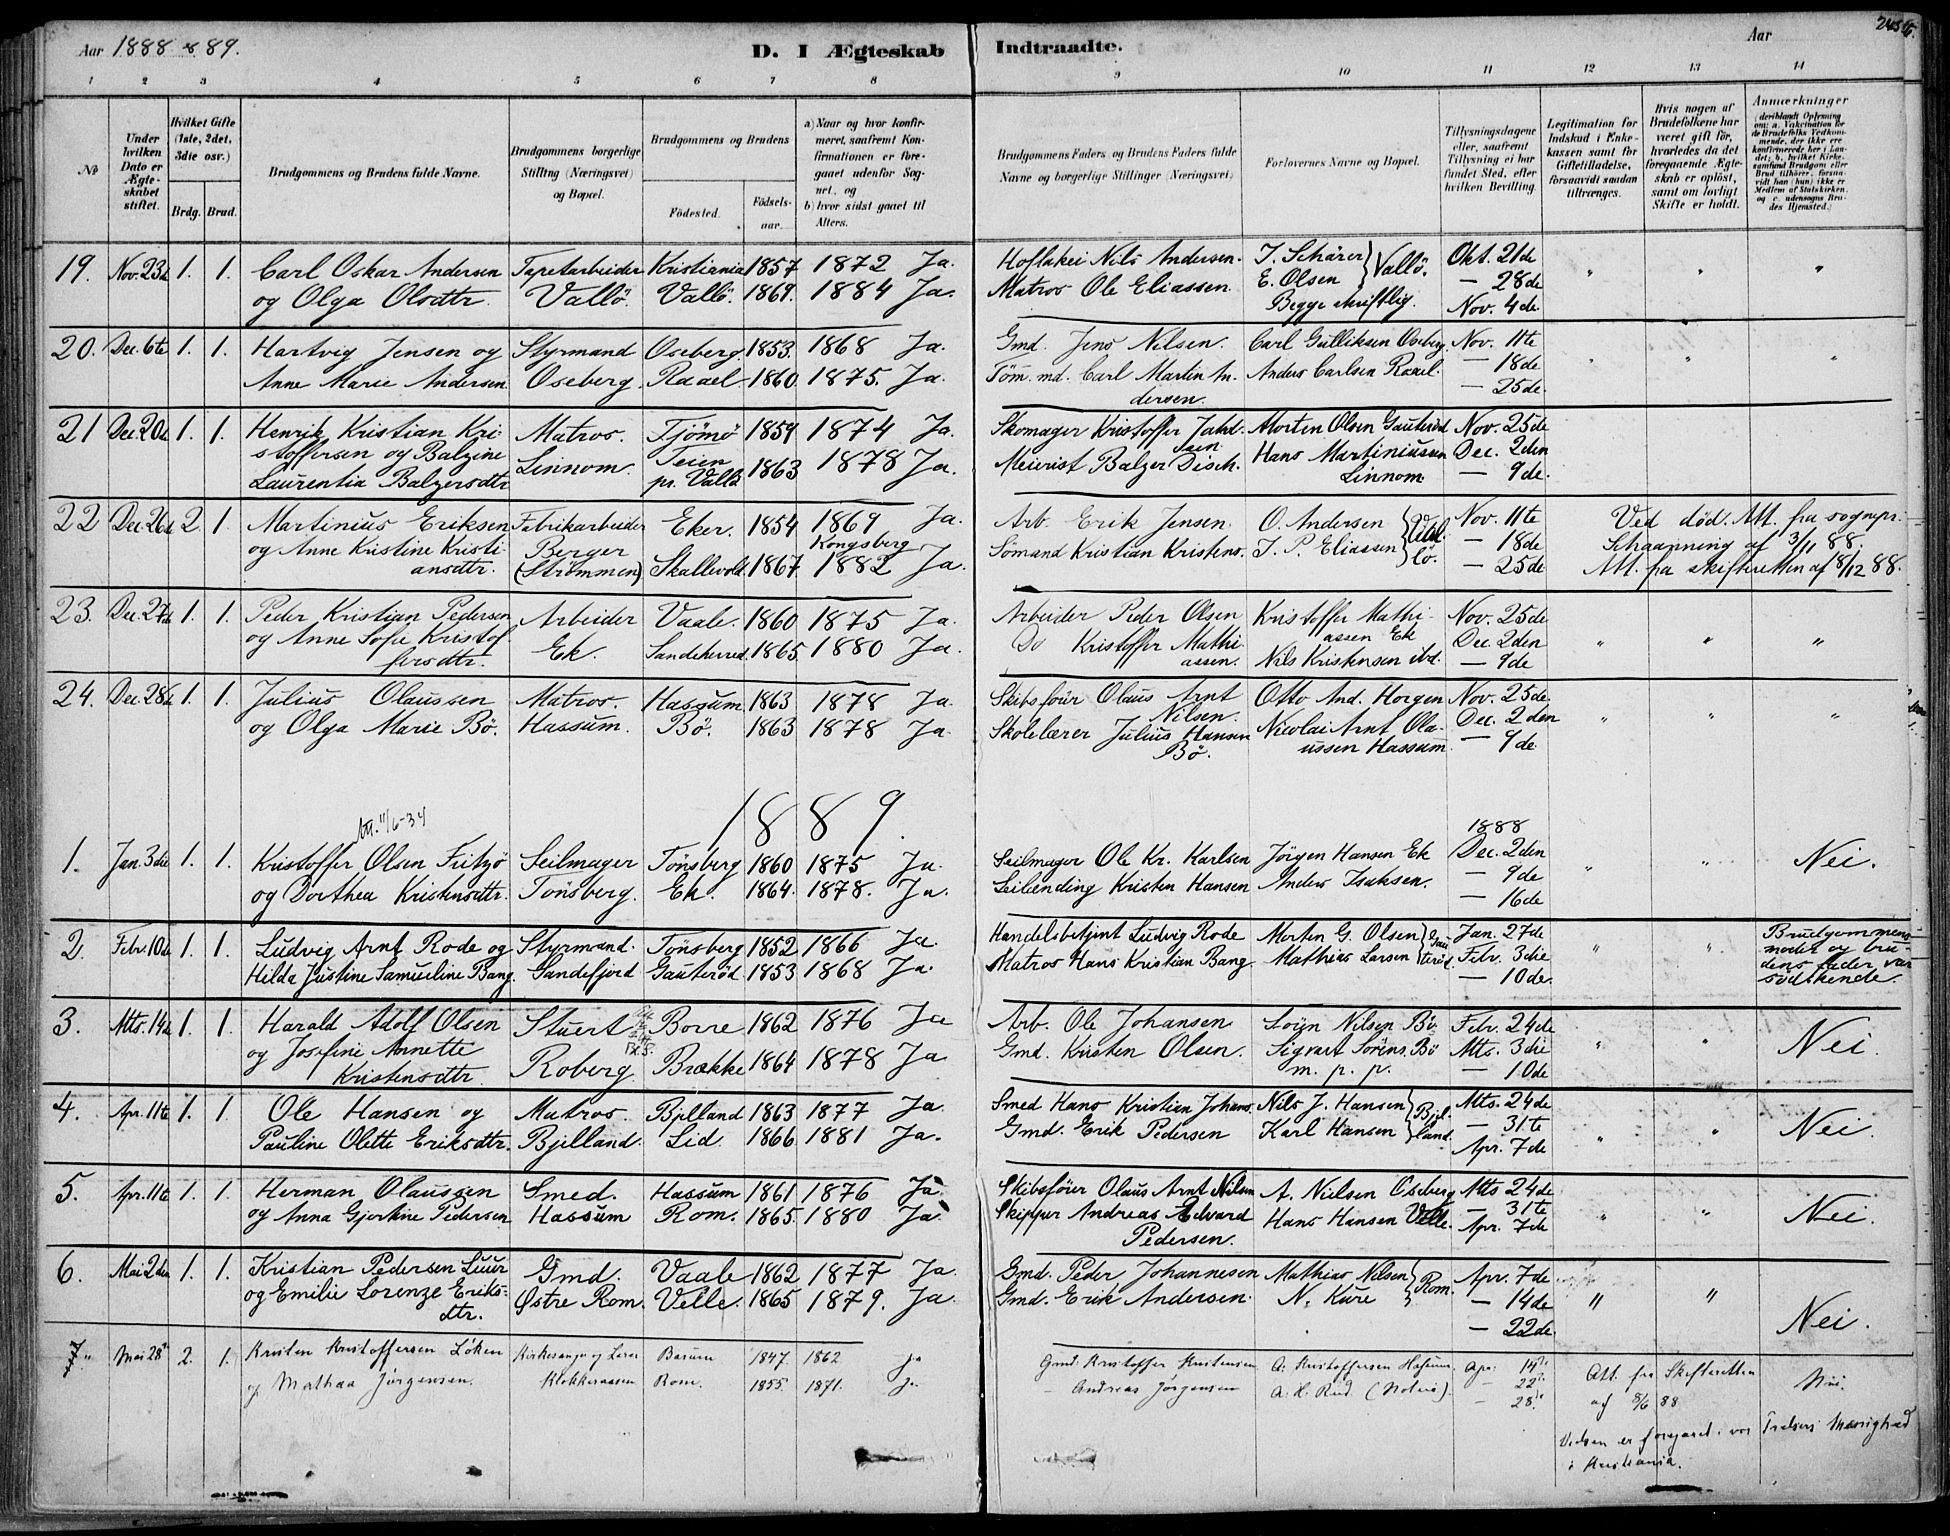 Aar 1888 & 89.
D. I Ægteskab Indtraadte.
Aar
1 2 3 4 5 6 7 8 9 10 11 12 13 14
No
Under hvilken Dato er Ægteskabet stiftet.
Hvilket Gifte (1ste, 2det, 3die osv.)
Brdg. Brud.
Brudgommens og Brudens fulde Navne.
Brudgommens borgerlige Stilling (Næringsvei) og Bopæl.
Brudgommens og Brudens
Fødested. Fødselsaar.
a) Naar og hvor konfirmeret, saafremt Konfirmationen er foregaaet udenfor Sognet, og
b) hvor sidst gaaet til Alters.
Brudgommens Faders og Brudens Faders fulde Navne og borgerlige Stillinger (Næringsvei)
Forlovernes Navne og Bopæl.
Tillysningsdagene eller, saafremt Tillysning ei har fundet Sted, efter hvilken Bevilling.
Legitimation for Indskud i Enkekassen samt for Giftetilladelse, forsaavidt saadan tiltrænges.
Hvis nogen af Brudefolkene har været gift før, hvorledes da det foregaaende Ægteskab er opløst, samt om lovligt Skifte er holdt.
Anmærkninger (deriblandt Oplysning om: a. Vakcination for de Brudefolks Vedkommende, der ikke ere konfirmerede her i Landet; b. hvilket Kirkesamfund Brudgom eller Brud tilhører, forsaavidt han (hun) ikke er Medlem af Statskirken, og c. udensogns Brudes Hjemsted.)
19. Nov. 23d 1. 1. Carl Oskar Andersen Tapetarbeider Kristiania 1857 1872 Ja. Hoflakei Nils Andersen. I. Schärer } Vallö. Okt. 21de " " "
og Olga Olsdtr. Vallö. Vallö. 1869. 1884 Ja. Matros Ole Eliassen. E. Olsen — 28de
Begge skriftlig. Nov. 4de
20. Dec. 6te 1. 1. Hartvig Jensen og Styrmand Oseberg. 1853. 1868 Ja. Gmd. Jens Nilsen. Carl Gulliksen Oseberg. Nov. 11te " " "
Anne Marie Andersen. Oseberg. Raael. 1860. 1875. Ja. Töm. md. Carl Martin An- Anders Carlsen Raael. — 18de
dersen. — 25de.
21 Dec. 20d 1. 1. Henrik Kristian Kri- Matros. Tjömö 1859 1874 Ja. Skomager Kristoffer Jahd- Morten Olsen Gauteröd Nov. 25de
stoffersen og Balzine Linnom. Teien 1863 1878 Ja. sen. Hans Martiniussen Dec. 2den
Laurentia Balzersdtr pr. Vallö Meierist Balzer Disch. Linnom. — 9de.
22 Dec. 26d 2. 1. Martinius Eriksen Fabrikarbeider Eker. 1854 1869 Ja. Arb. Erik Jensen. O. Andersen } Val- Nov. 11te Ved död. Att. fra sognepr.
og Anne Kristine Kristi- Berger Kongsberg Sömand Kristian Kristens. I. P. Eliassen lö. — 18de Schaanning af 3/11 88.
ansdtr. (Strömmen) Skallevold. 1867. 1882 Ja. — 25de Att. fra skifteretten af 8/12 88.
23. Dec. 27de 1. 1. Peder Kristian Pedersen Arbeider Vaale. 1860 1875 Ja. Arbeider Peder Olsen Kristoffer Mathi- Nov. 25de
og Anne Sofie Kristof- Ek. Sandeherred. 1865. 1880 Ja. Do Kristoffer Mathi- assen Ek Dec. 2den " " "
fersdtr. assen. Nils Kristensen ibd. — 9de
24. Dec. 28de 1. 1. Julius Olaussen Matros. Hassum. 1863 1878 Ja Skibsförer Olaus Arnt Otto And. Horgen Nov. 25de
og Olga Marie Bö. Hassum. Bö. 1863 1878 Ja Nilsen. Nicolai Arnt Ola- Dec. 2den " " "
Skolelærer Julius Hansen ussen Hassum. — 9de
Bö.
1889.
Att. 11/6-34 1888
1. Jan. 3die 1. 1. Kristoffer Olsen Fritzö Seilmager Tönsberg 1860 1875 Ja. Seilmager Ole Kr. Karlsen Jörgen Hansen Ek Dec. 2den " " Nei.
og Dorthea Kristensdtr. Tönsberg. Ek. 1864. 1878. Ja. Kristen Hansen Anders Isaksen. — 9de
— 16de
2. Febr. 10de 1. 1. Ludvig Arnt Rode og Styrmand. Tönsberg 1852 1866 Ja. Handelsbetjent Ludvig Rode Morten G. Olsen } Gau- Jan. 27de " " Brudgommens
Hilda Justine Samueline Bang. Sandefjord Gauteröd 1853 1868 Ja. Matros Hans Kristian Bang Mathias Larsen teröd. Febr. 3die moder og bru-
— 10de. dens fader var
södskende.
3. Mts. 14de 1. 1. Harald Adolf Olsen Stuert Borre 1862 1876 Ja Arb. Ole Johansen Sörn Nilsen Bö Febr. 24de
og Josefine Annette Roberg. Brække 1864 1878 Ja. Gmd. Kristen Olsen. Sigvart Sörens. Bö Mts. 3die " " Nei.
Kristensdtr. m. p. p. — 10de
4. Apr. 11te 1. 1. Ole Hansen og Matros. Bjelland 1863 1877 Ja. Smed Hans Kristian Johans. Nils J. Hansen } Bjel- Mts. 24de
Pauline Olette Eriksdtr. Bjelland. Lid. 1866. 1881 Ja. Gmd. Erik Pedersen Karl Hansen land. — 31te " " Nei.
Apr. 7de
5. Apr. 11te 1. 1. Herman Olaussen Smed. Hassum 1861 1876 Ja. Skibsförer Olaus Arnt Nilsen A. Nielsen Oseberg Mts 24de
og Anna Gjertine Pedersen Hassum Rom. 1865. 1880 Ja. Skipper Andreas Edvard Hans Hansen Velle. — 31te " " Nei.
Pedersen. Apr. 7de
6. Mai 2den 1. 1. Kristian Pedersen Luur Gmd. Vaale 1862 1877 Ja. Gmd. Peder Johannesen Mathias Nilsen } Rom. Apr. 7de
og Emilie Lorenze Eriks- Østre Rom. Velle. 1865 1879. Ja. Gmd. Erik Andersen. N. Kure — 14de " "
dtr. — 22de. Nei.
7 " Mai 28 2. 1. Kristen Kristoffersen Löken Kirkesanger og Lærer Bærum 1847. 1862 ja Gmd. Kristoffer Kristensen A. Kristoffersen Hassum. Apr: 14de Att. fra Skifteretten Nei.
og Mathea Jörgensen. Klokkeraasen Rom. 1855. 1871. ja — Andreas Jörgensen A. H. Rud. — 22 af 8/6 88
— 28
Vielsen er foregaaet i vor Frelsers Menighed
i Kristiania.